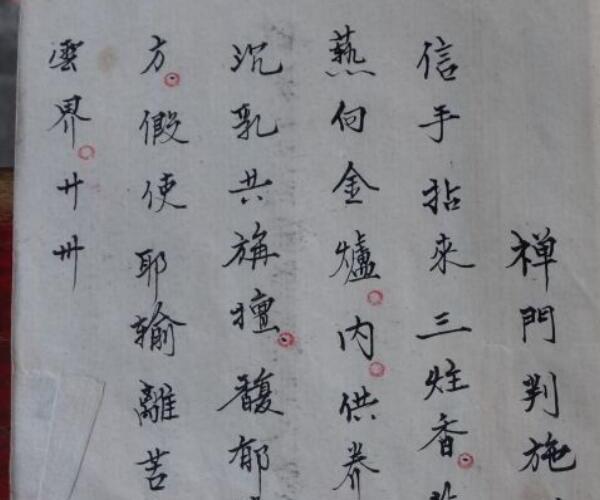 禅門判施
信手拈來三炷香
爇向金爐内供养
沉乳共旃檀馥郁
方假使耶输離苦
雲界卄卅